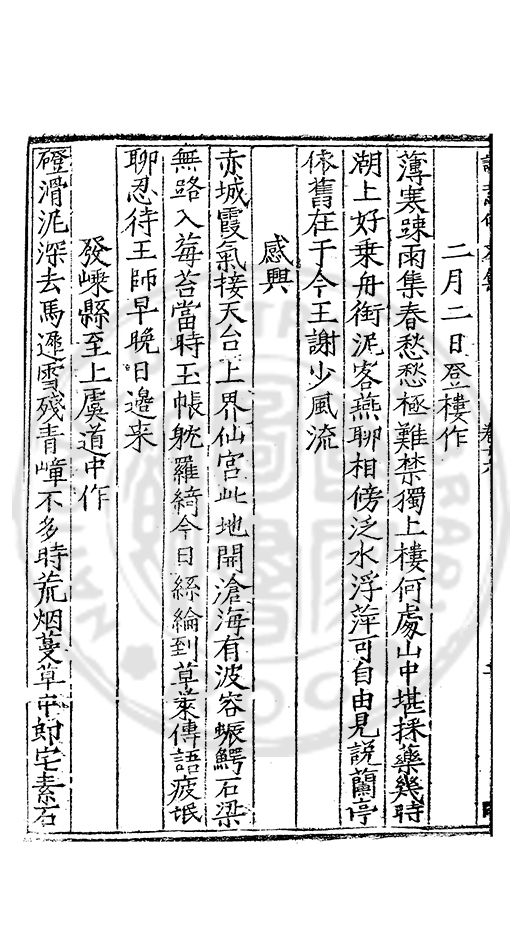 二月二日登樓作
薄寒踈雨集春愁愁極難禁獨上樓何處山中堪採藥幾時
湖上好乗舟銜泥客燕聊相傍泛水浮萍可自由見說蘭亭
依舊在于今王謝少風流
感興
赤城霞氣接天台上界仙宫此地開滄海有波容蜃鰐石梁
無路入莓苔當時玉帳躭羅綺今日絲綸到草萊傳語疲氓
聊忍待王師早晚日邊来
發嵊縣至上虞道中作
磴滑泥深去馬遲雪殘青嶂不多時荒烟蔓草中郎宅素石